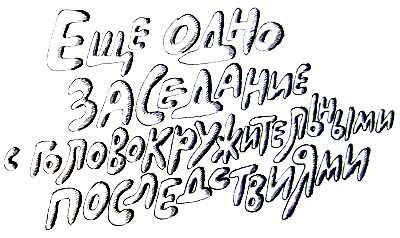 Еще одно
заседание
с головокружительными
последствиями